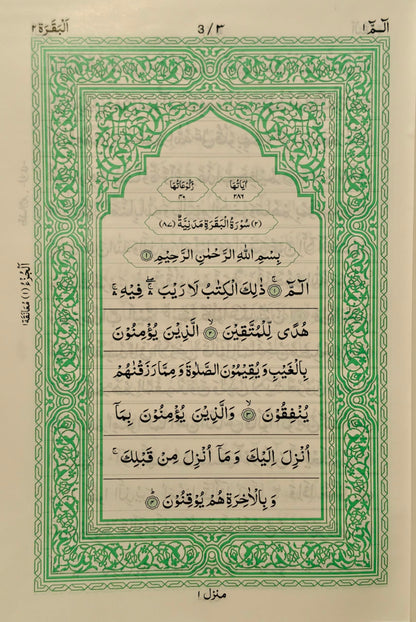 الٓمّٓ ١
3/٣
اَلْبَقَرَة ٢
اٰيَاتُهَا
٢٨٦
رُكُوْعَاتُهَا
٤٠
(٢) سُوْرَةُ الْبَقَرَةِ مَدَنِيَّةٌ (٨٧)
بِسْمِ اللّٰهِ الرَّحْمٰنِ الرَّحِيْمِ ۝١
الٓمّٓ ۝١ ذٰلِكَ الْكِتٰبُ لَا رَيْبَ ۛ فِيْهِ ۛ
هُدًى لِّلْمُتَّقِيْنَ ۝٢ الَّذِيْنَ يُؤْمِنُوْنَ
بِالْغَيْبِ وَيُقِيْمُوْنَ الصَّلٰوةَ وَمِمَّا رَزَقْنٰهُمْ
يُنْفِقُوْنَ ۝٣ وَالَّذِيْنَ يُؤْمِنُوْنَ بِمَآ
اُنْزِلَ اِلَيْكَ وَمَآ اُنْزِلَ مِنْ قَبْلِكَ ۚ
وَبِالْاٰخِرَةِ هُمْ يُوْقِنُوْنَ ۝٤
اَلْجُزْءُ (١) مُعَانَقَة ١
منزل ١